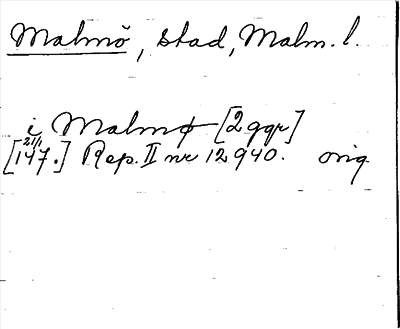 Malmö, stad, Malm. l.
i Malmø [2 ggr]
21/1
[147.] Rep. II nr 12940. orig.